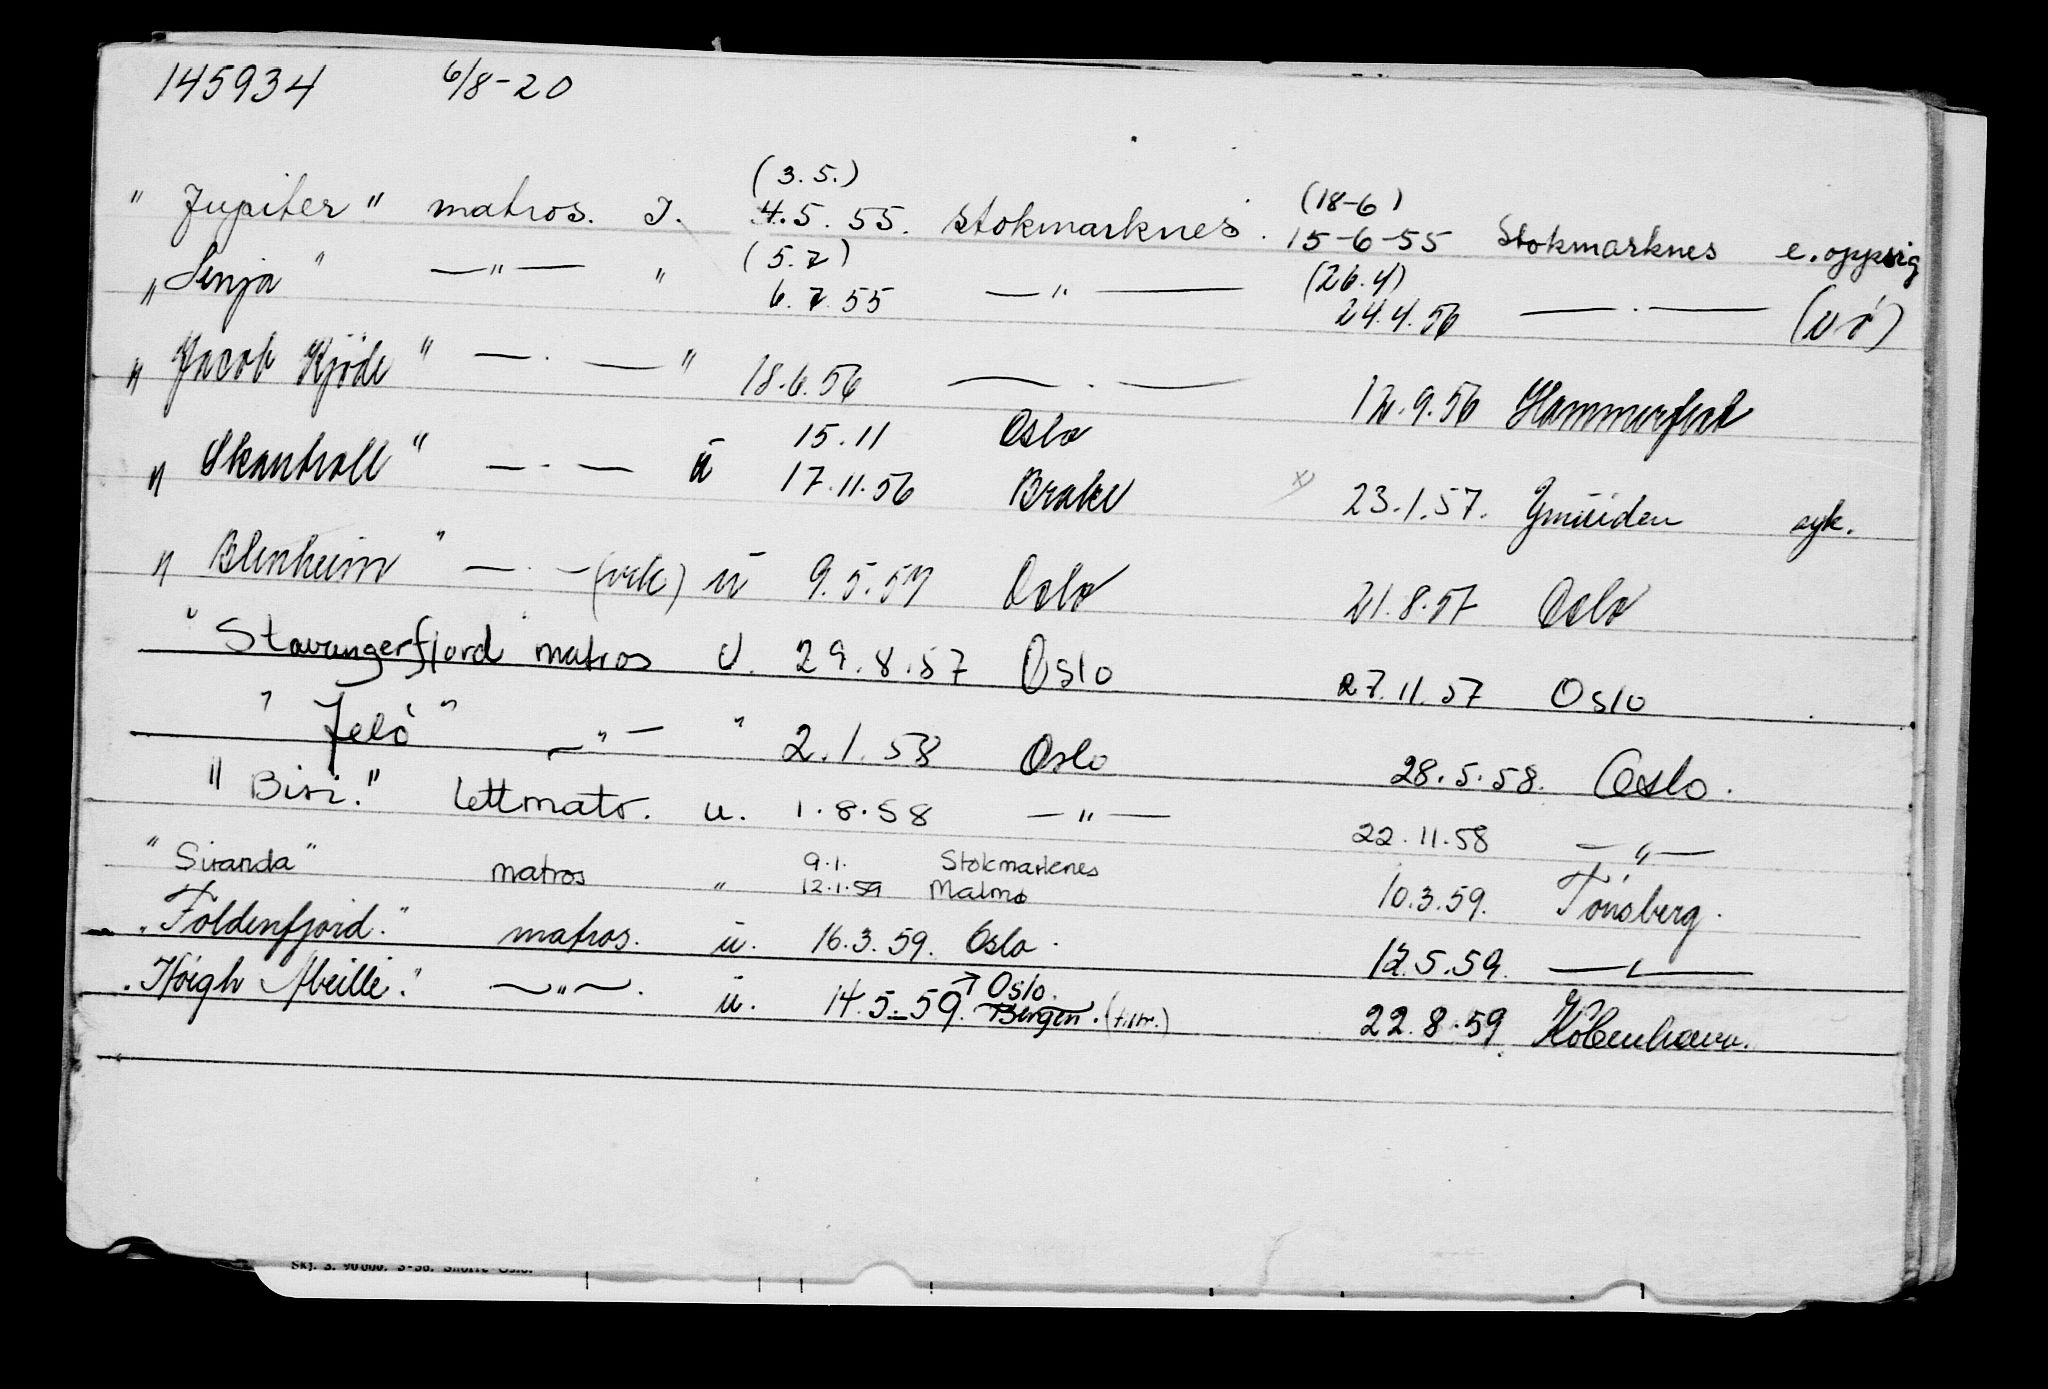 145934 6/8-20
(3.5.) (18-6)
"Jupiter" matros. I. 4.5.55. Stokmarknes. 15-6-55 Stokmarknes e. oppsig
(5.7) (26.4)
"Senja" —"— " 6.7.55 —"— 24.4.56 —.— (UÖ)
"Jacob Kjöde" —.— " 18.6.56 —.— 12.9.56 Hammerfest
15.11 Oslo
"Skantroll" —.— ū 17.11.56 Brake x) 23.1.57. Ymüiden syk.
"Blenheim" —.— (vik) ū 9.5.57 Oslo 21.8.57 Oslo
"Stavangerfjord matros U. 29.8.57 Oslo 27.11.57 Oslo
"Jelö" —"— " 2.1.58 Oslo 28.5.58. Oslo.
"Biri." Lettmatr. u. 1.8.58 —"— 22.11.58 —"—
9.1. Stokmarknes
"Siranda" matros " 12.1.59 Malmø 10.3.59. Tönsberg.
"Foldenfjord." matros. ū. 16.3.59. Oslo. 12.5.59. —"—
→ Oslo.
"Höigh Abeille." —"—. ū. 14.5-59. Bergen. (tiltr.) 22.8.59. Köbenhavn.
Skj. 3. 90000. 3-56. Oslo.